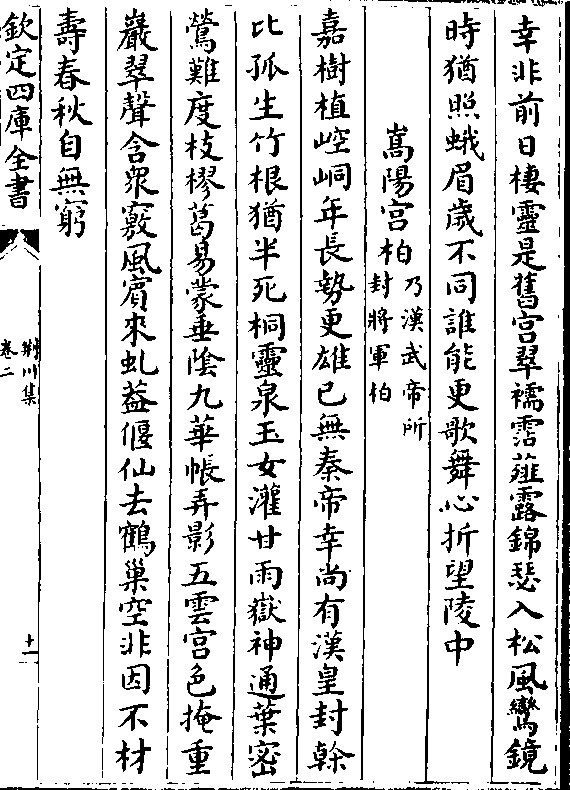 幸非前日棲靈是舊宫翠襦霑薤露錦瑟入松風鸞鏡
時猶照蛾眉歲不同誰能更歌舞心折望陵中
嵩陽宫柏乃漢武帝所封將軍柏
嘉樹植崆峒年長勢更雄已無秦帝幸尚有漢皇封榦
比孤生竹根猶半死桐靈泉玉女灌甘雨嶽神通葉密
鶯難度枝樛葛易蒙垂陰九華帳弄影五雲宫色掩重
巖翠聲含衆竅風賓來虬葢偃仙去鶴巢空非因不材
壽春秋自無窮
欽定四庫全書
荆川集
卷二
十一